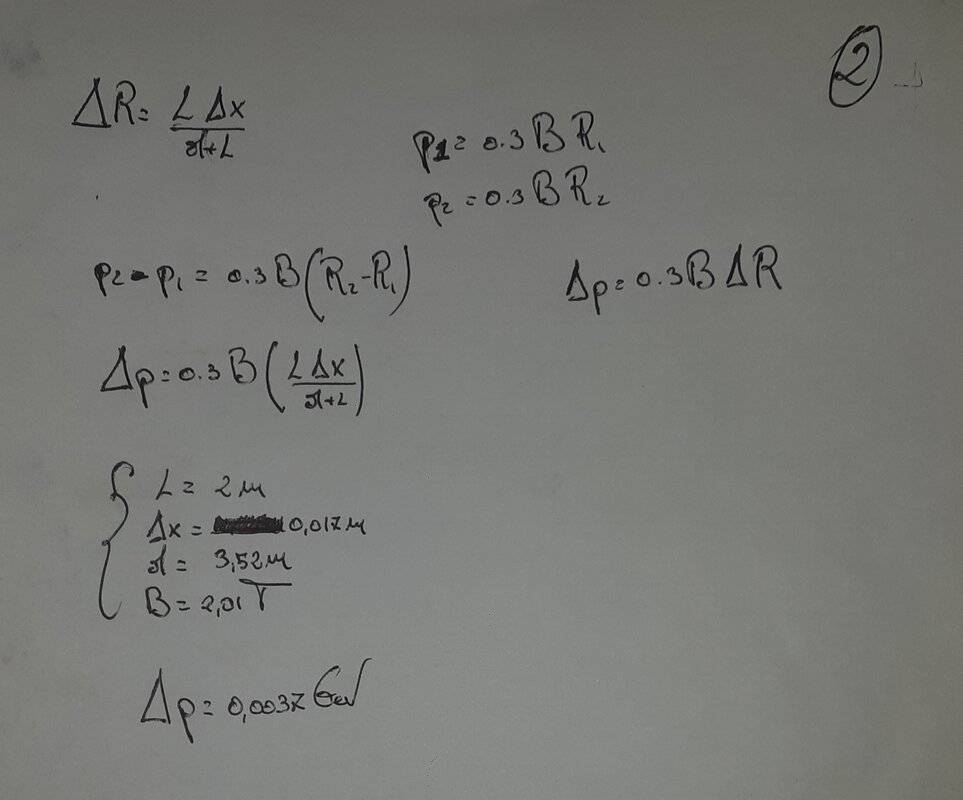 2
ΔR = L Δx / d+L
p1 = 0.3 B R₁
p₂ = 0.3 B R₂
p₂ - p₁ = 0.3 B (R₂ - R₁)
Δp = 0.3 B ΔR
Δp = 0.3 B (L Δx / d+L)
L = 2 m
Δx = 0,017 m
d = 3,52 m
B = 2,01 T
Δp = 0,0037 GeV